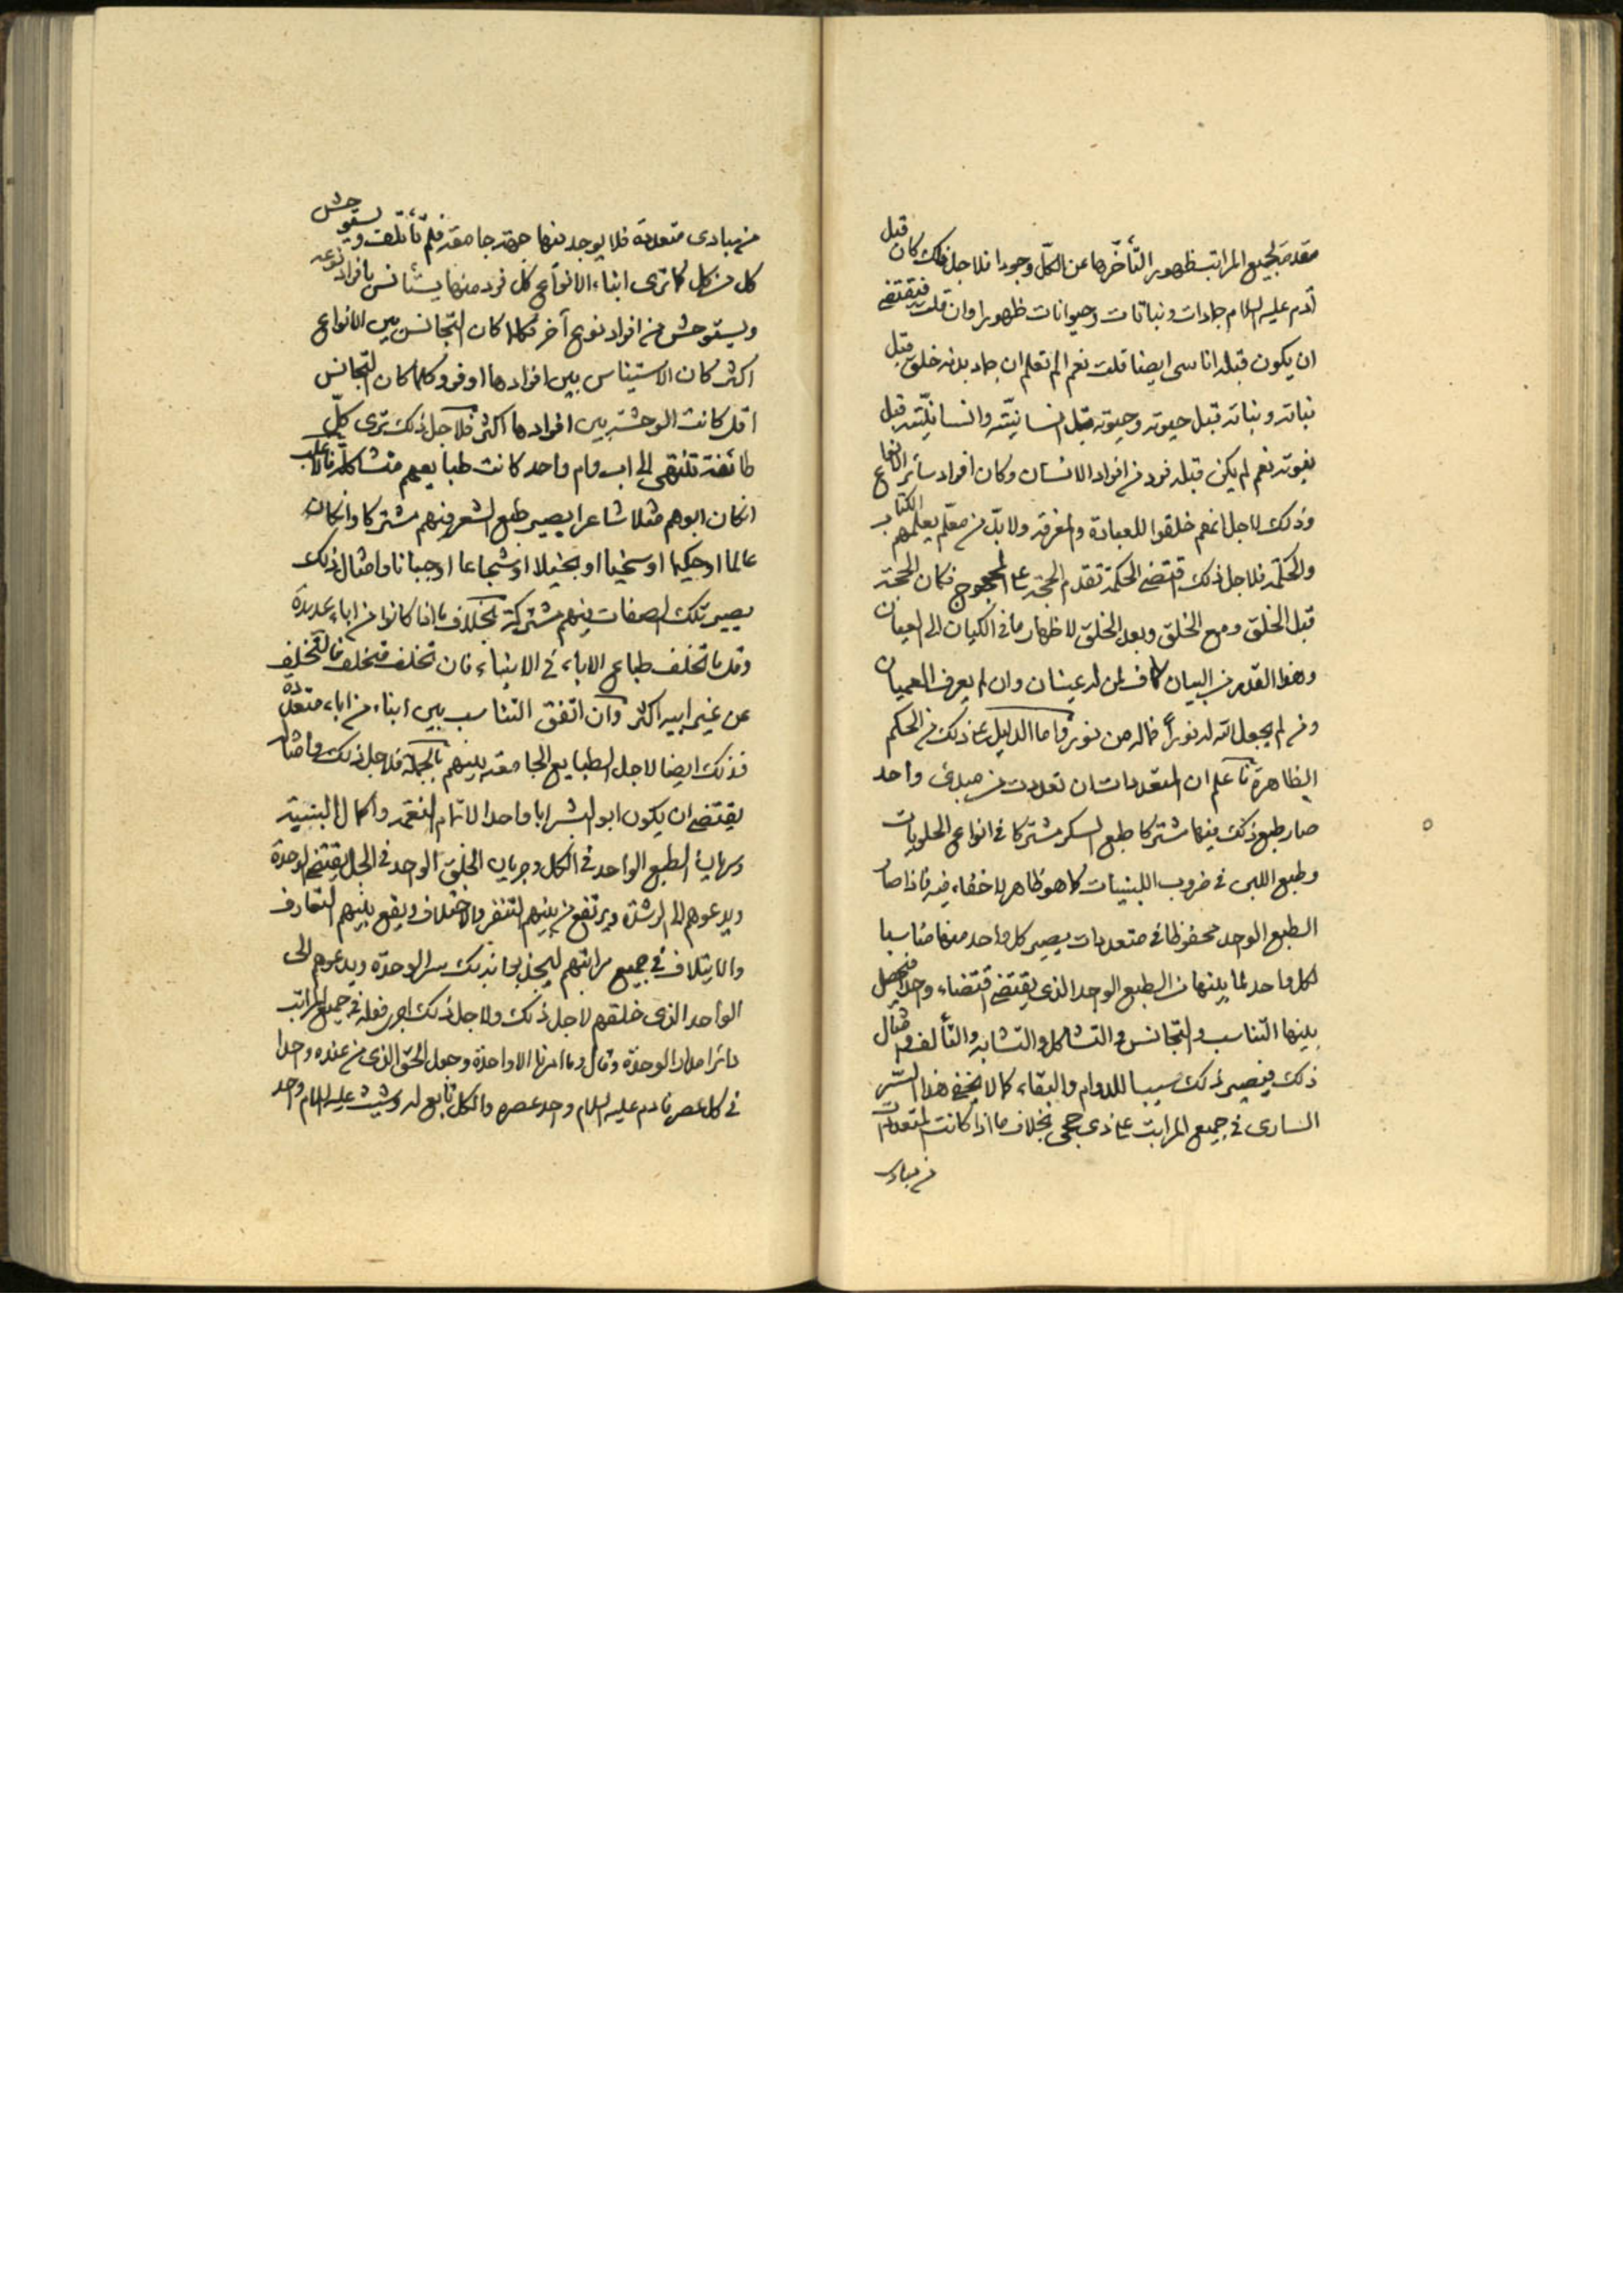 مقدمة لجميع المراتب ظهورا لتأخرها عن الكل وجودا فلاجل ذلك كان قبل
آدم عليه السلام جمادات ونباتات وحيوانات ظهورا وان قلت فيقتضي
ان يكون قبله اناسى ايضا قلت نعم الم تعلم ان جماد بدنه خلق قبل
نباته ونباته قبل حيوته وحيوته قبل انسانيته وانسانيته قبل
نبوته نعم لم يكن قبله فرد من افراد الانسان وكان افراد سائر الانواع
وذلك لاجل انهم خلقوا للعبادة والمعرفة ولا بد من معلم يعلمهم الكتاب
والحكمة فلاجل ذلك اقتضى الحكمة تقدم الحجة على المحجوج فكان الحجة
قبل الخلق ومع الخلق وبعد الخلق لاظهار ما في الكيان الى العيان
وهذا القدر من البيان كاف لمن له عينان وان لم يعرف العميان
ومن لم يجعل الله له نورا فما له من نور واما الدليل على ذلك من الحكم
الظاهرة فاعلم ان المتعددات ان تعددت من مبدئ واحد
صار طبع ذلك فيها مشتركا طبع السكر مشتركا في انواع الحلويات
وطبع اللبن في ضروب اللبنيات كما هو ظاهر لا خفاء فيه فاذا صار
الطبع الوحد محفوظا في متعددات يصير كل واحد منها مناسبا
لكل واحد لما بينها من الطبع الوحد الذي يقتضي اقتضاء وحدا فيحصل
بينها التناسب والتجانس والتشاكل والتشابه والتألف وامثال
ذلك فيصير ذلك سببا للدوام والبقاء كما لا يخفى هذا السر
السارى في جميع المراتب على ذى حجى بخلاف ما اذا كانت المتعددات
من مبادى
من مبادى متعددة فلا يوجد فيها جهة جامعة فلم تأتلف ويستوحش
كل من كل كما ترى ابناء الانواع كل فرد منها يستأنس بافراد نوعه
ويستوحش من افراد نوع آخر فكلما كان التجانس بين الانواع
اكثر كان الاستيناس بين افرادها اوفر وكلما كان التجانس
اقل كانت الوحشة بين افرادها اكثر فلاجل ذلك ترى كل
طائفة تنتهى الى اب وام واحد كانت طبايعهم متشاكلة فالاغلب
ان كان ابوهم مثلا شاعرا يصير طبع الشعر فيهم مشتركا وان كان
عالما او حكيما او سخيا او بخيلا او شجاعا او جبانا وامثال ذلك
يصير تلك الصفات فيهم مشتركة بخلاف ما اذا كانوا من اباء عديدة
وقل ما تخلف طباع الاباء في الابناء فان تخلف متخلف فالتخلف
عن غير ابيه اكثر وان اتفق التناسب بين ابناء من اباء متعددة
فذلك ايضا لاجل الطبايع الجامعة بينهم بالجملة فلاجل ذلك وامثاله
يقتضي ان يكون ابو البشر ابا واحدا لاتمام النعمة واكمال البنية
وسريان الطبع الواحد في الكل وجريان الخلق الوحد في الجل ليقتضي الوحدة
ويدعوهم الى الرشدة ويرتفع من بينهم التنفر والاختلاف ويقع بينهم التعارف
والايتلاف في جميع مراتبهم لينجذبوا بذلك سر الوحدة ويدعوهم الى
الواحد الذى خلقهم لاجل ذلك ولاجل ذلك اجرى فعله في جميع المراتب
دائرا مدار الوحدة وقال وما امرنا الا واحدة وجعل الحق الذى من عنده وحدا
في كل عصر فادم عليه السلام وحد عصره والكل تابع له وشيث عليه السلام وحد